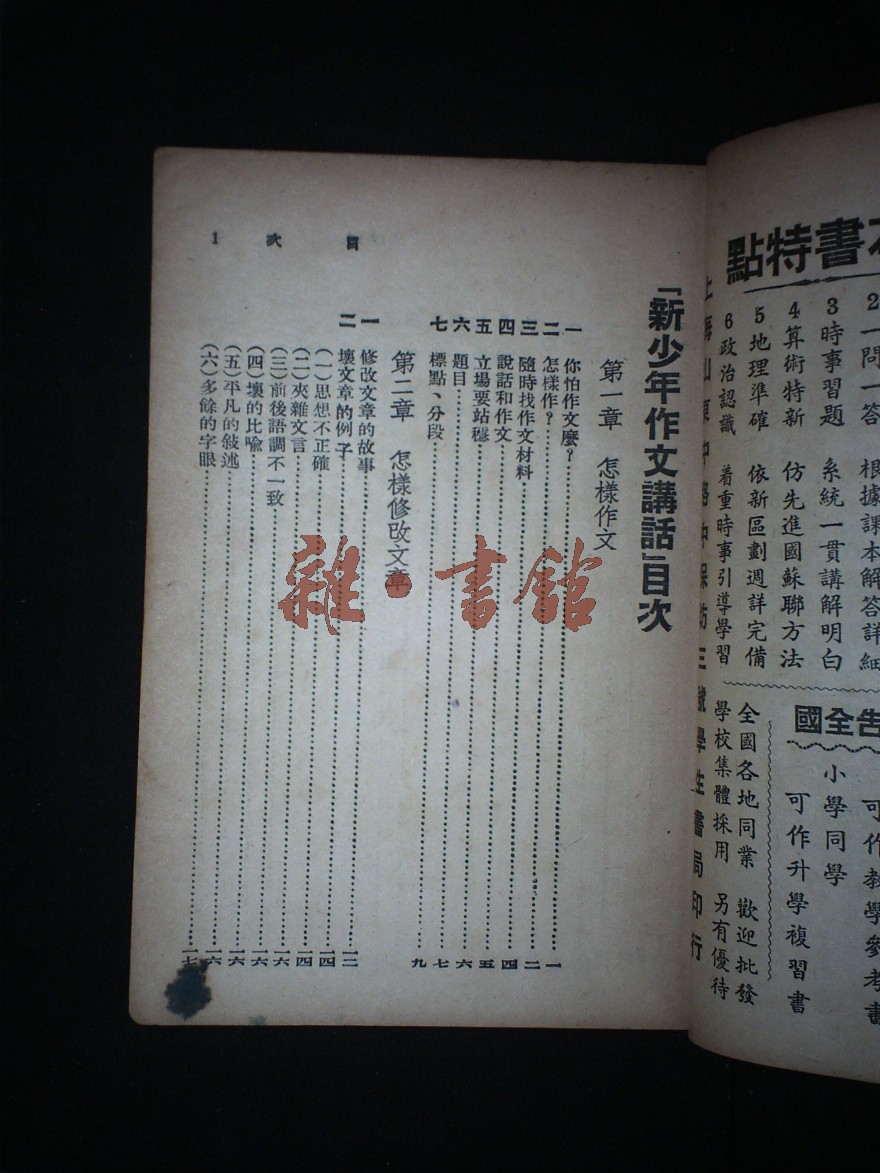 本書特點
2 一問一答 根據課本解答詳細
3 時事習題 系統一貫講解明白
4 算術特新 仿先進國蘇聯方法
5 地理準確 依新區劃週詳完備
6 政治認識 着重時事引導學習
告全國
可作教學參考書
小學同學 可作升學複習書
全國各地同業 歡迎批發
學校集體採用 另有優待
上海山東中路中保坊三號學生書局印行
目次 1
「新少年作文講話」目次
第一章 怎樣作文
一 你怕作文麼?……一
二 怎樣作?……二
三 隨時找作文材料……四
四 說話和作文……五
五 立場要站穩……六
六 題目……七
七 標點、分段……九
第二章 怎樣修改文章
一 修改文章的故事……一二
二 壞文章的例子……一四
(一)思想不正確……一四
(二)夾雜文言……一六
(三)前後語調不一致……一六
(四)壞的比喩……一六
(五)平凡的敍述……一六
(六)多餘的字眼……一七
雜·書館